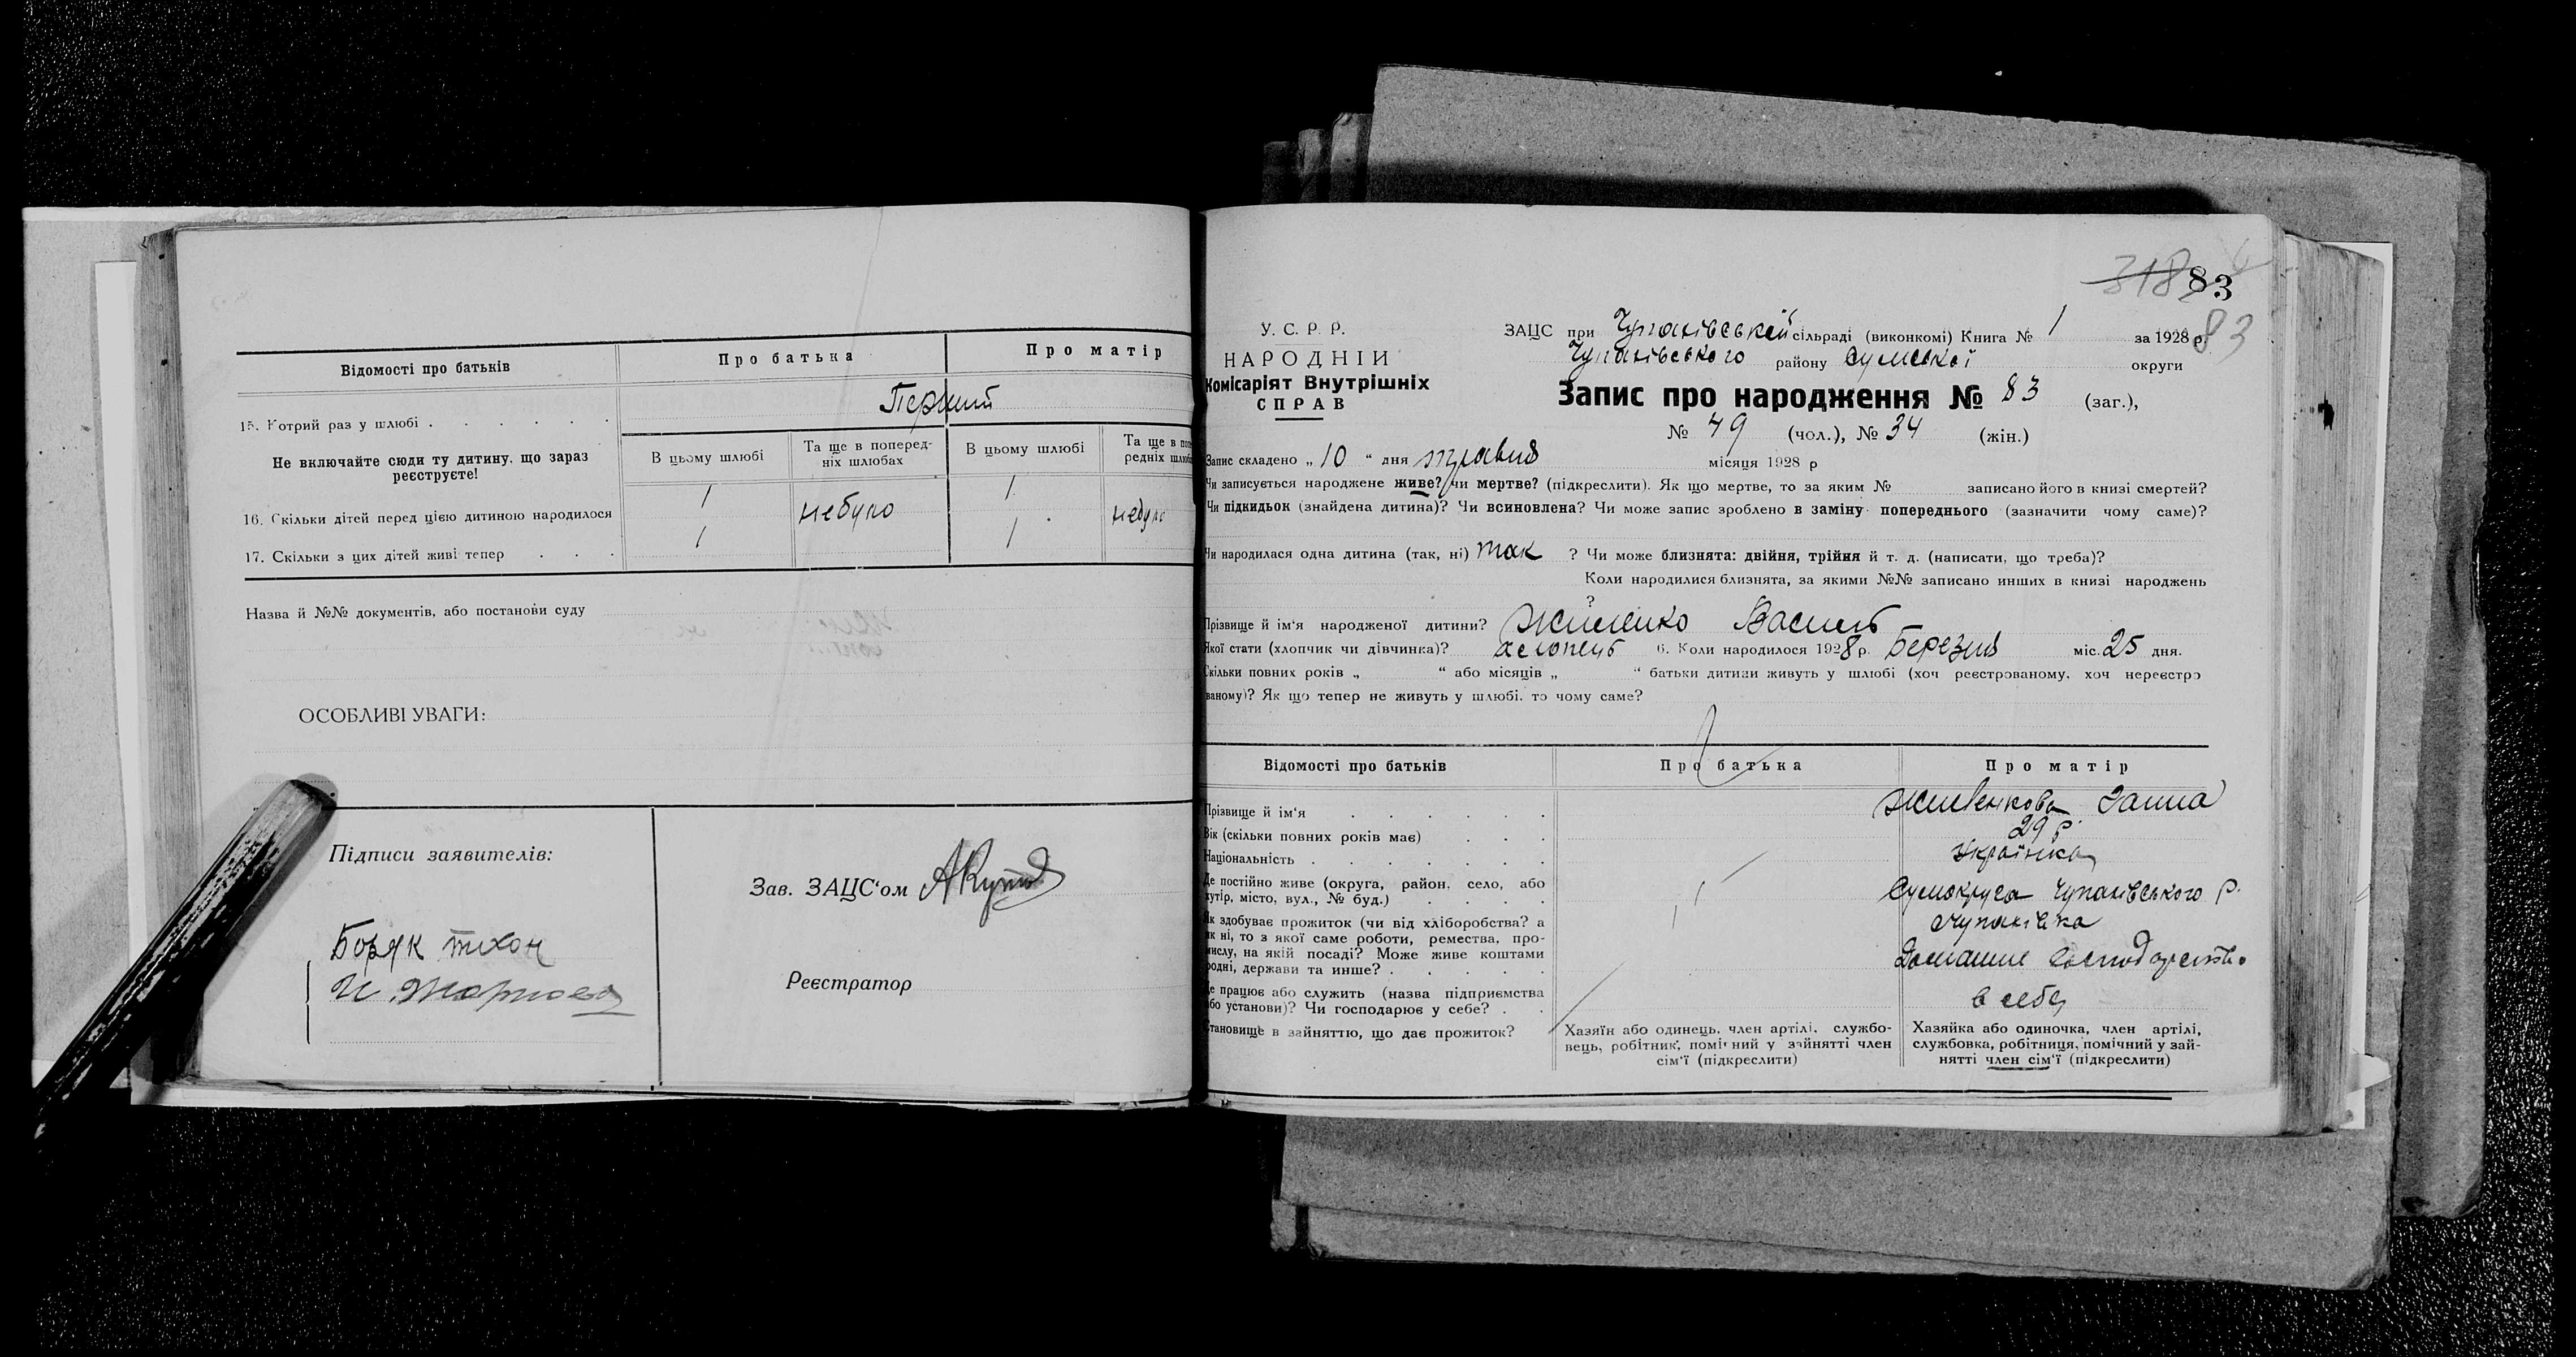 Відомості про батьків
Про батька
Про матір
15. Котрий раз у шлюбі
Перший
Не включайте сюди ту дитину, що зараз реєструєте!
В цьому шлюбі
Та ще в попередніх шлюбах
В цьому шлюбі
Та ще в попередніх шлюбах
16. Скільки дітей перед цією дитиною народилося
1
небуло
1
небуло
17. Скільки з цих дітей живі тепер
1
1
Назва й №№ документів, або постанови суду
ОСОБЛИВІ УВАГИ:
Підписи заявителів:
Боряк тихон
Зав. ЗАЦС'ом
Реєстратор
318
83
83
У. С. Р. Р.
НАРОДНІЙ
Комісаріят Внутрішніх
СПРАВ
ЗАЦС при Чупахівській сільраді (виконкомі) Книга № 1 за 1928 р.
Чупахівського району Сумської округи
Запис про народження № 83 (заг.),
№ 49 (чол.), № 34 (жін.)
Запис складено „ 10 “ дня травня місяця 1928 р
Чи записується народжене живе? чи мертве? (підкреслити). Як що мертве, то за яким № записано його в книзі смертей?
Чи підкидьок (знайдена дитина)? Чи всиновлена? Чи може запис зроблено в заміну попереднього (зазначити чому саме)?
Чи народилася одна дитина (так, ні) так ? Чи може близнята: двійня, трійня й т. д. (написати, що треба)?
Коли народилися близнята, за якими №№ записано инших в книзі народжень
?
Прізвище й ім'я народженої дитини? Василь
Якої стати (хлопчик чи дівчинка)? хлопець 6. Коли народилося 1928 р. Березня міс. 25 дня.
Скільки повних років „ “ або місяців „ “ батьки дитини живуть у шлюбі (хоч реєстрованому, хоч нереєстро
ваному)? Як що тепер не живуть у шлюбі, то чому саме?
Відомості про батьків
Про батька
Про матір
Прізвище й ім'я
Ганна
Вік (скільки повних років має)
29 р.
Національність
Українка
Де постійно живе (округа, район, село, або
хутір, місто, вул., № буд.)
Сумокруга Чупахівського р.
Чупахівка
Як здобуває прожиток (чи від хліборобства? а
як ні, то з якої саме роботи, ремества, про-
мислу, на якій посаді? Може живе коштами
родні, держави та инше?
Домашнє господарство
Де працює або служить (назва підприємства
або установи)? Чи господарює у себе?
в себе
Становище в зайняттю, що дає прожиток?
Хазяїн або одинець, член артілі, службо-
вець, робітник, помічний у зайнятті член
сім'ї (підкреслити)
Хазяйка або одиночка, член артілі,
службовка, робітниця, помічний у зай-
нятті член сім'ї (підкреслити)